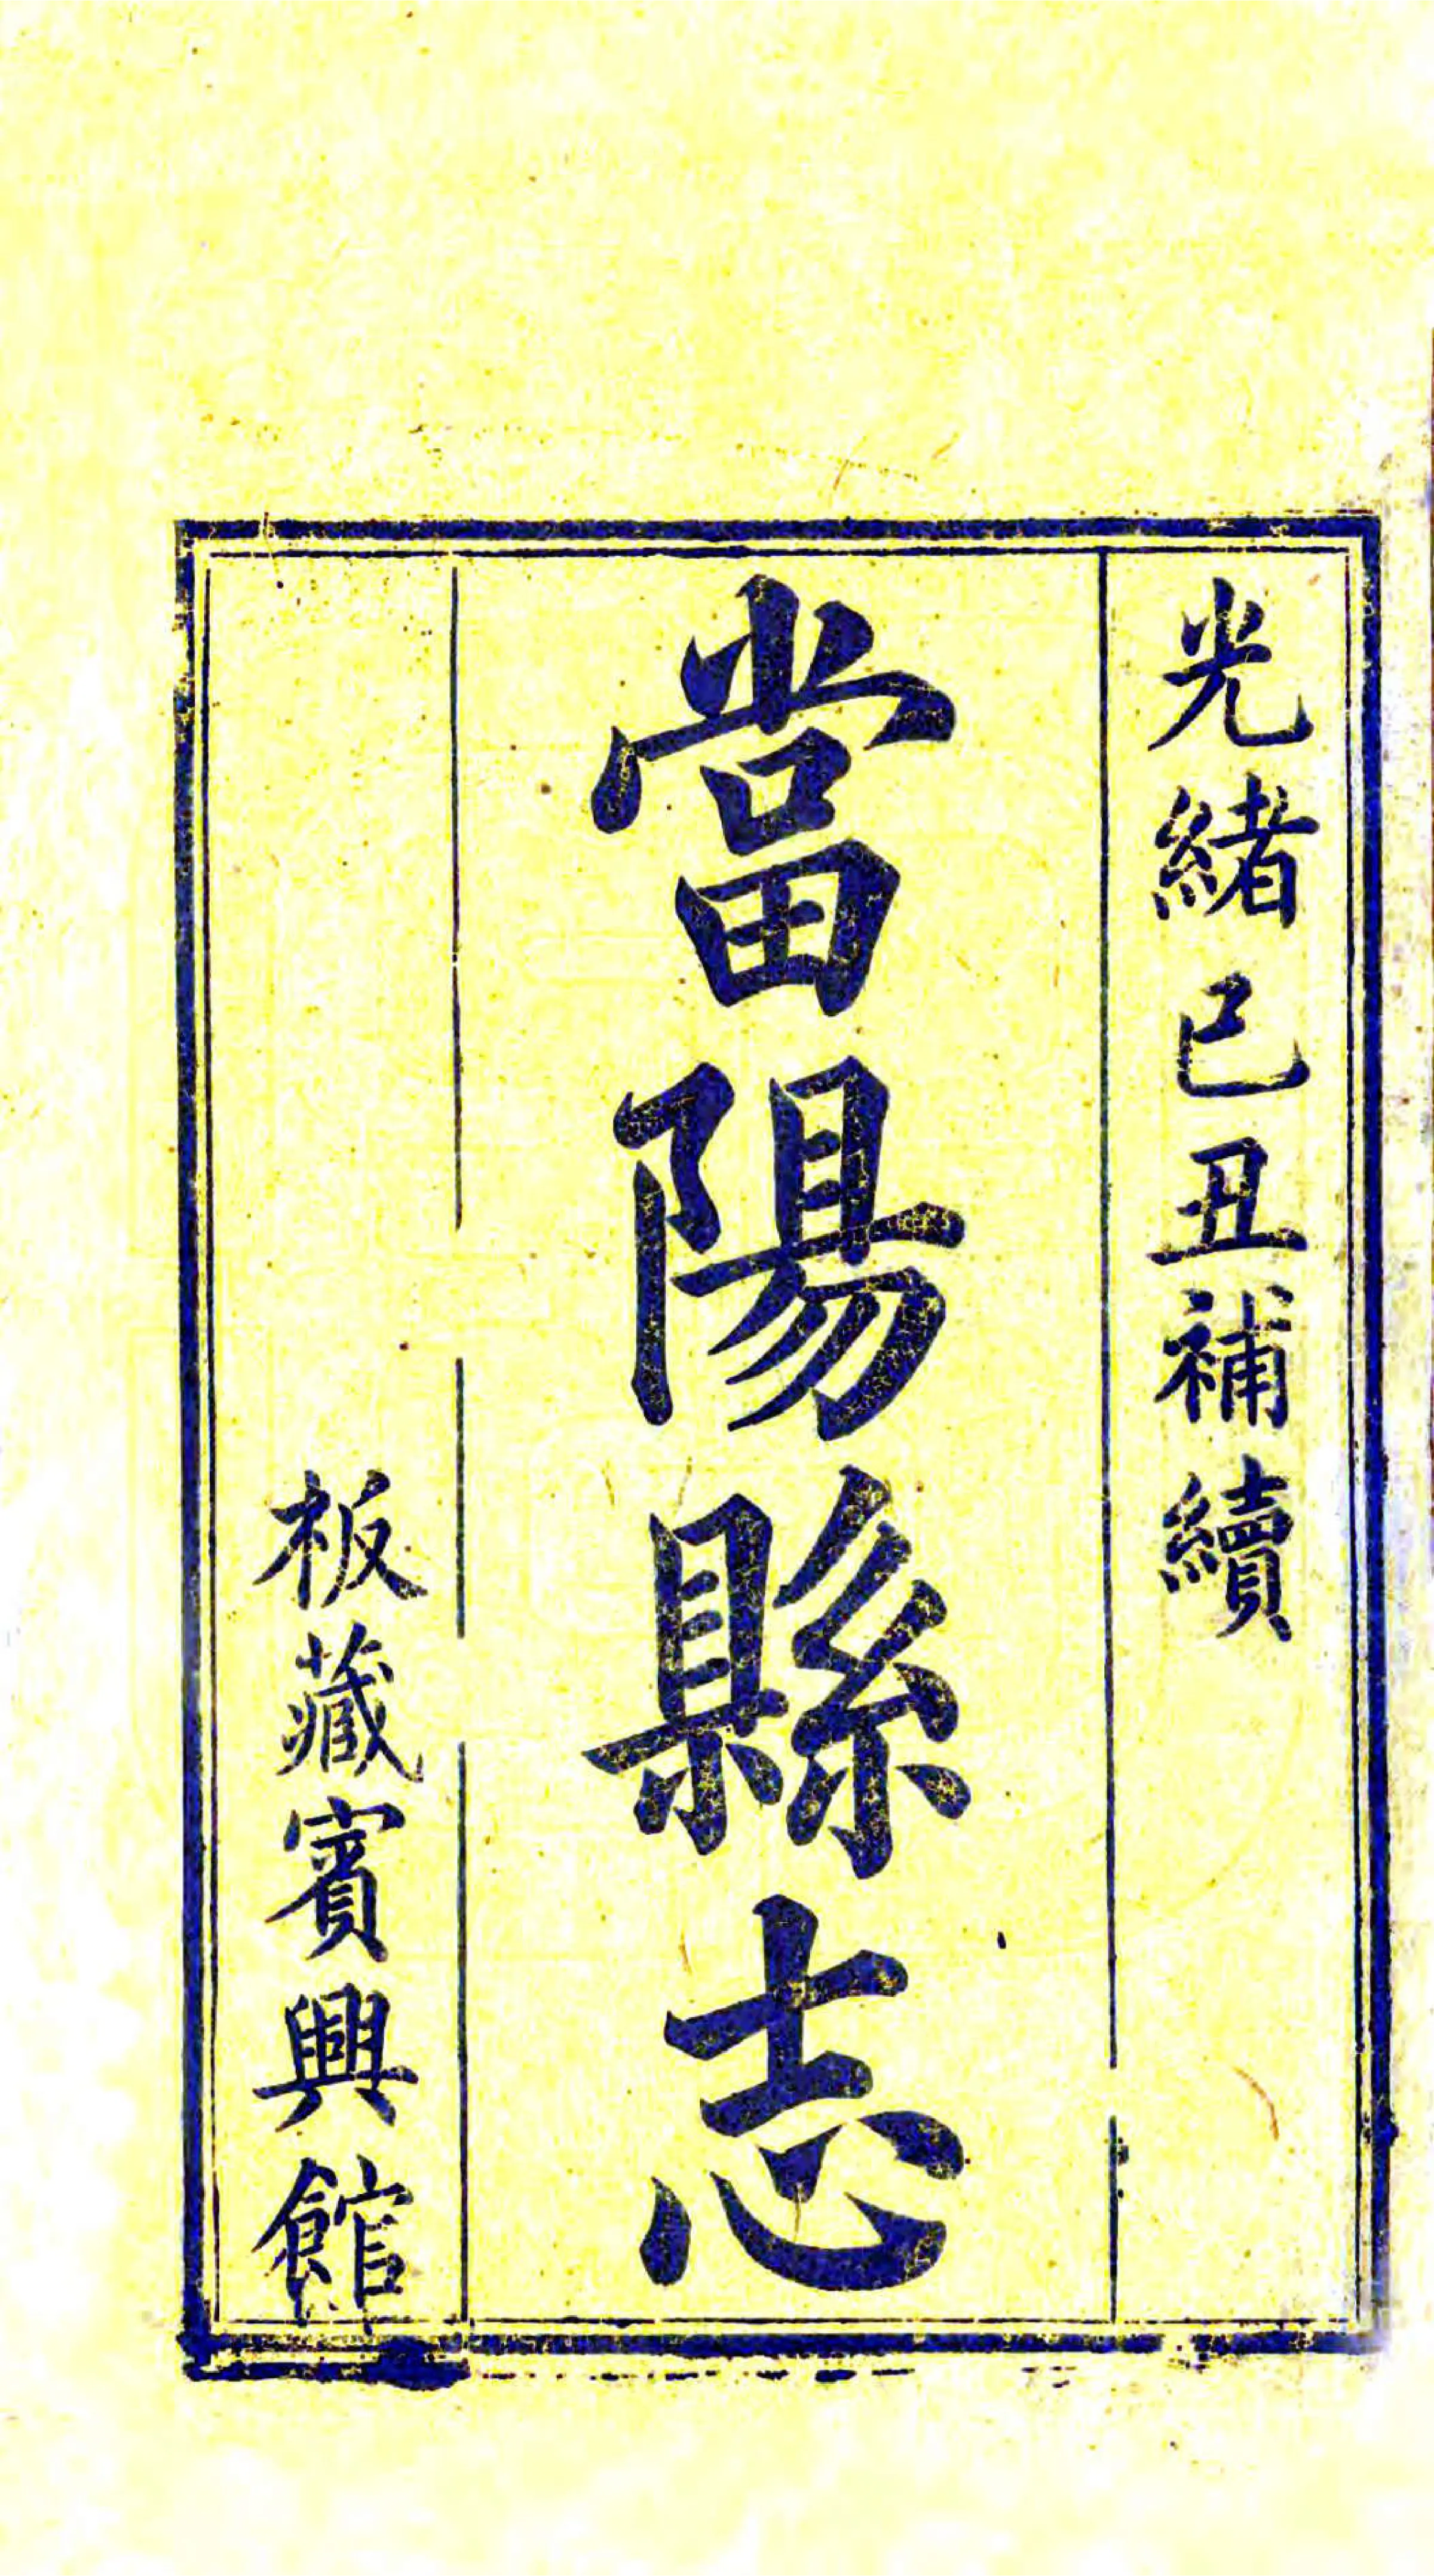 光緒己丑補續
當陽縣志
板藏賓興館